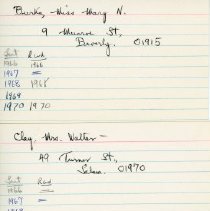 Burke, Miss Mary N.
9 Munroe St,
Beverly, 01915
Sent Recd
1966 1966
1967 =
1968 1968
1969
1970 1970
Clay, Mrs. Walter -
49 Turner St.,
Salem, 01970
Sent Recd
1966 =
1967 =